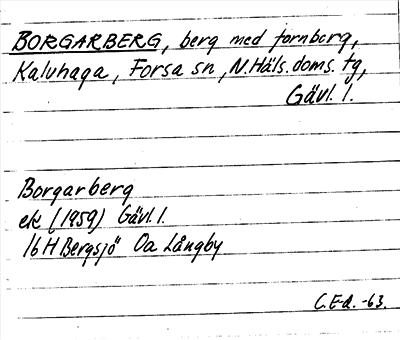 BORGARBERG, berg med fornborg,
Kaluhaga, Forsa sn, N. Häls. doms. tg,
Gävl. l.
Borgarberg
ek (1959) Gävl. l.
16 H Bergsjö Oa Långby
C.E-d. -63.